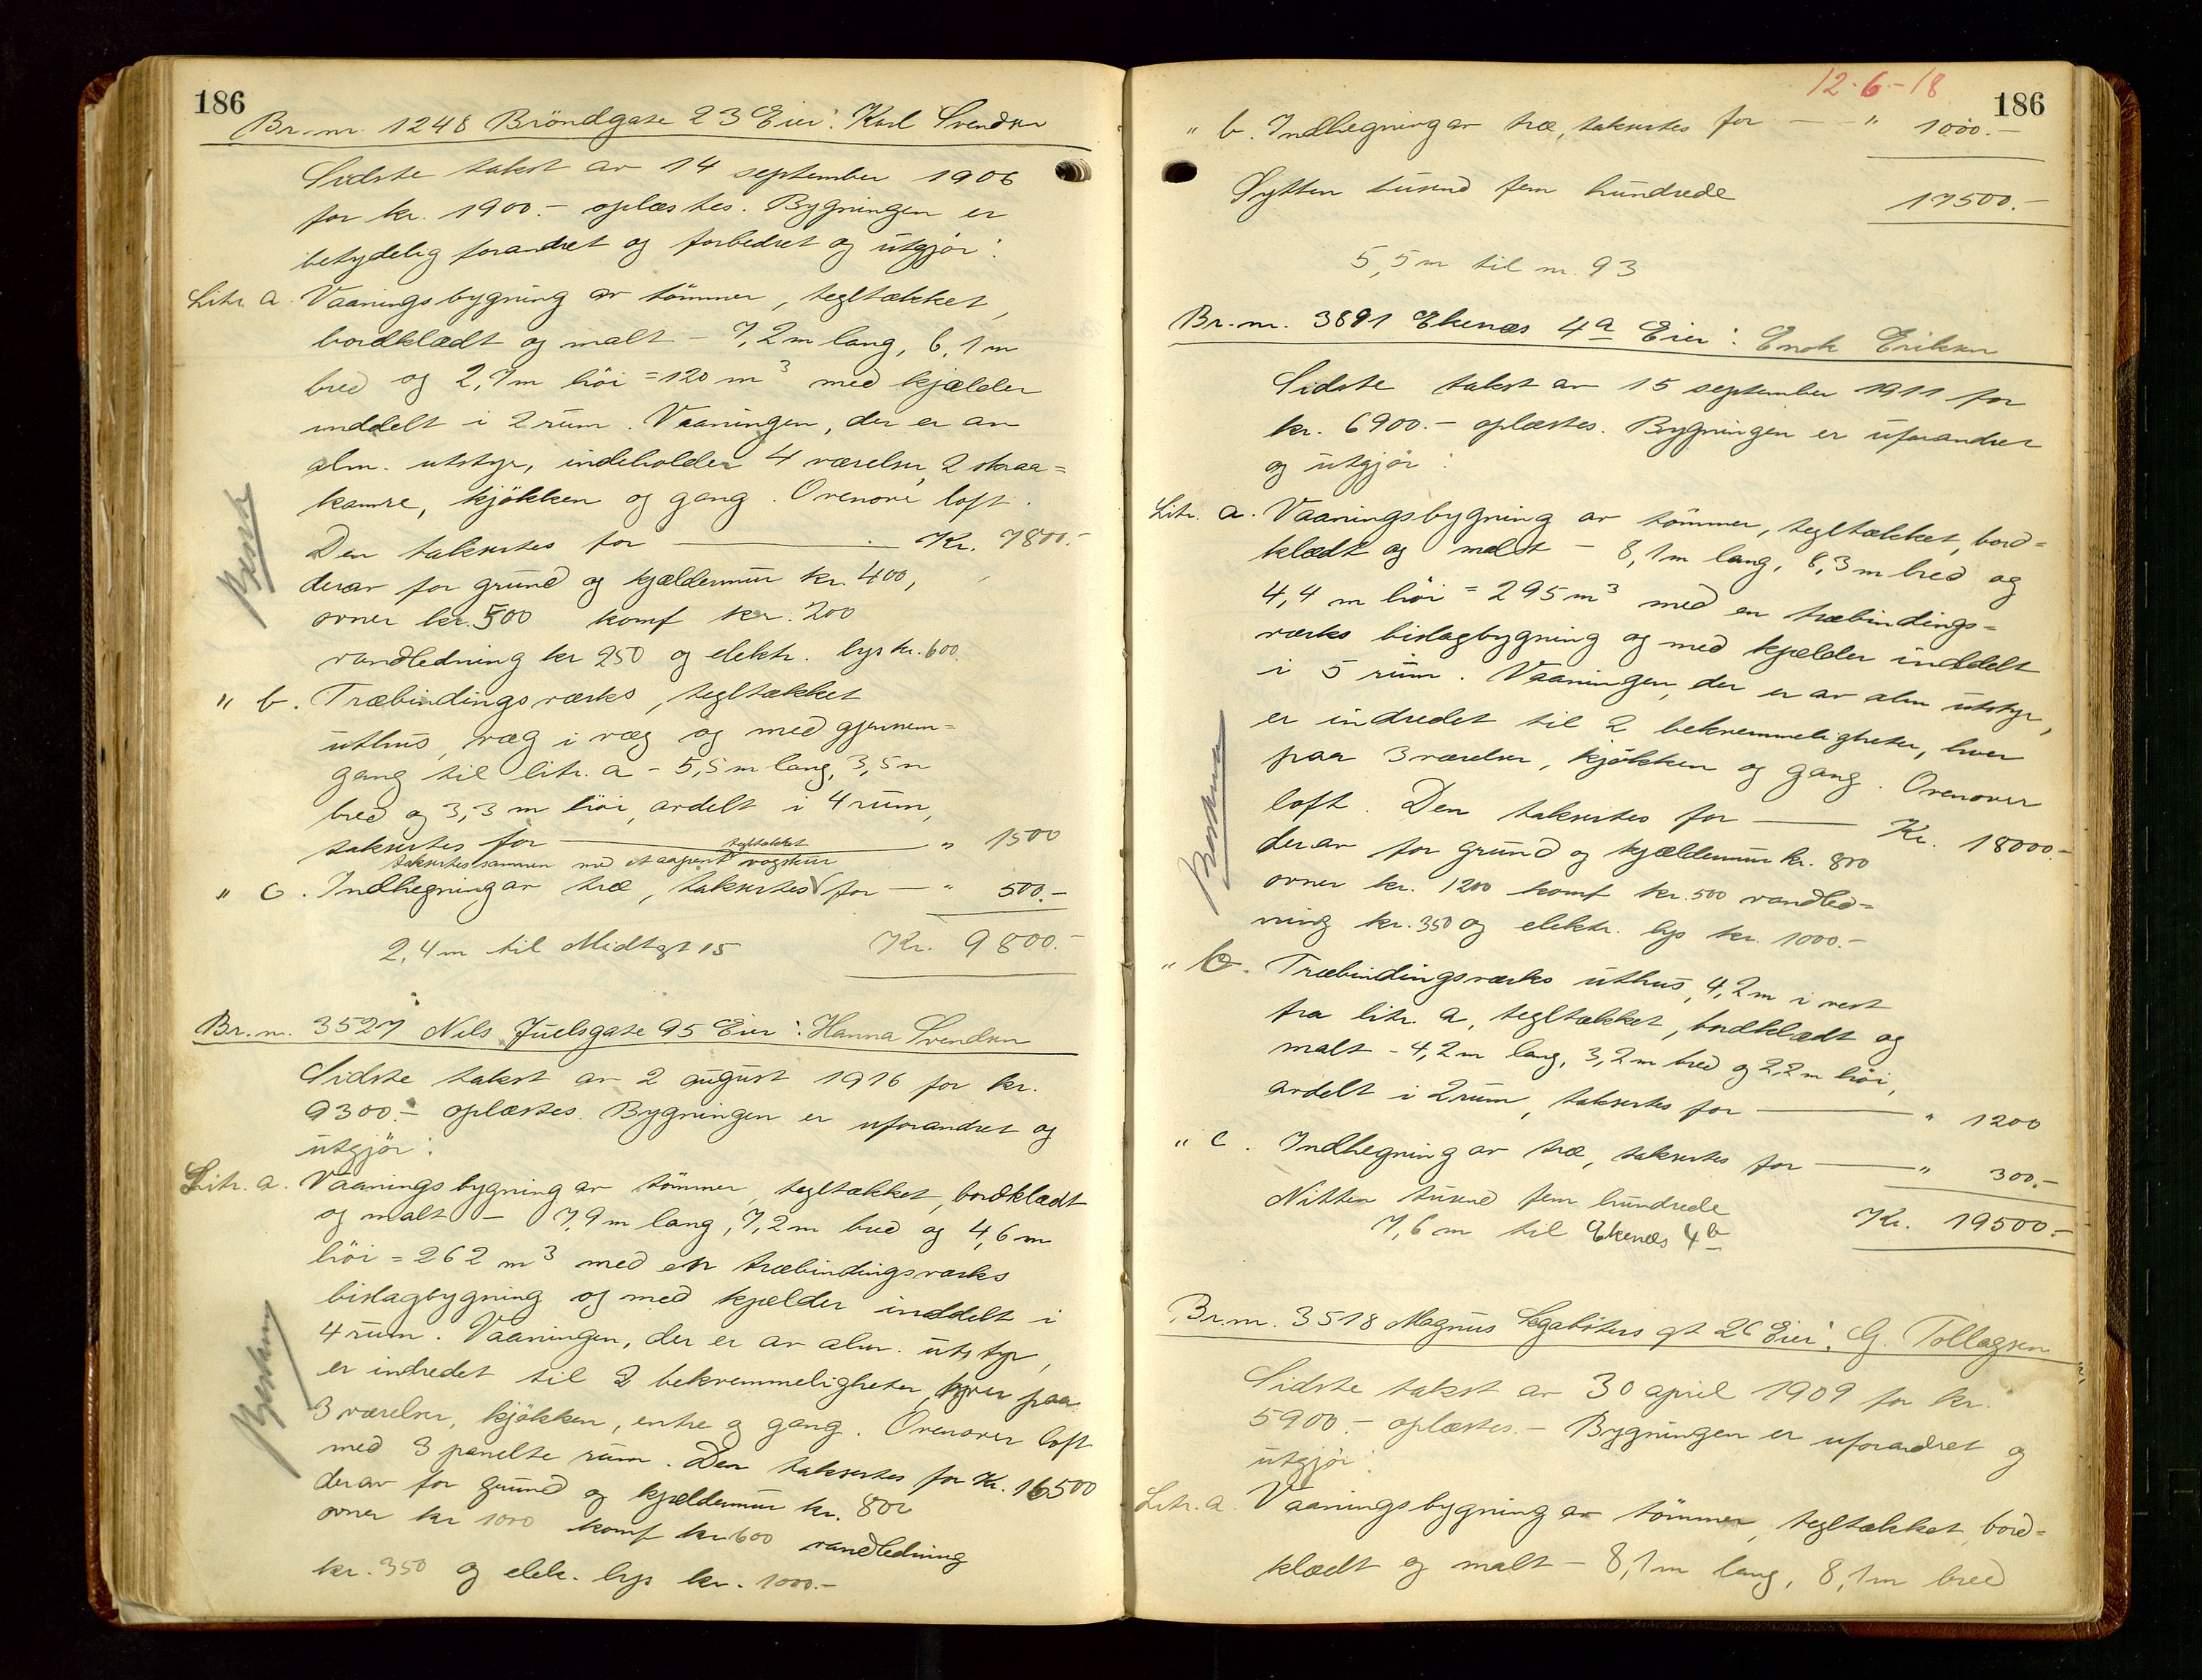 186
Br. nr. 1248 Bröndgate 23 Eier: Karl Svendsen
Sidste takst av 14 september 1906
for kr. 1900.- oplæstes. Bygningen er
betydelig forandret og forbedret og utgjör:
Litr. a. Vaaningsbygning av tömmer, tegltækket,
bordklædt og malt - 7,2 m lang, 6,1 m
bred og 2,7 m höi = 120 m³ med kjælder
inddelt i 2 rum. Vaaningen, der er av
alm. utstyr, indeholder 4 værelser, 2 skraa=
kamre, kjökken og gang. Ovenover loft.
Den takseres for Kr. 7800.-
derav for grund og kjældermur kr. 400,
ovner kr. 500 komf kr. 200
vandledning kr 250 og elektr. lys kr. 600.
" b. Træbindingsværks, tegltækket
uthus, væg i væg og med gjennem=
gang til litr. a - 5,5 m lang, 3,5 m
bred og 3,3 m höi, avdelt i 4 rum,
takseres for " 1500
takseres sammen med et aapent tegltækket vognskur
" c. Indhegning av træ, takseres √ for - " 500.-
2,4 m til Midtgt 15 Kr. 9800.-
Br. nr. 3527 Nils Juelsgate 95 Eier: Hanna Svendsen
Sidste takst av 2 august 1916 for kr.
9300.- oplæstes. Bygningen er uforandret og
utgjör:
Litr. a. Vaaningsbygning av tömmer, tegltækket, bordklædt
og malt - 7,9 m lang, 7,2 m bred og 4,6 m
höi = 262 m³ med en træbindingsværks
bislagbygning og med kjælder inddelt i
4 rum. Vaaningen, der er av alm. utstyr,
er indredet til 2 bekvemmeligheter, hver paa
3 værelser, kjökken, entre og gang. Ovenover loft
med 3 panelte rum. Den takseres for Kr. 16500
derav for grund og kjældermur kr. 800
ovner kr 1000 komf kr. 600 vandledning
kr. 350 og elek. lys kr. 1000.-
12-6-18
186
" b. Indhegning av træ, takseres for - - " 1000.-
Sytten tusend fem hundrede 17500.-
5,5 m til nr. 93
Br. nr. 3891 Ekenæs 4a Eier: Enok Eriksen
Sidste takst av 15 september 1911 for
kr. 6900.- oplæstes. Bygningen er uforandret
og utgjör:
Litr. a. Vaaningsbygning av tömmer, tegltækket, bord=
klædt og malt - 8,1 m lang, 8,3 m bred og
4,4 m höi = 295 m³ med en træbindings=
værks bislagbygning og med kjælder inddelt
i 5 rum. Vaaningen, der er av alm utstyr,
er indredet til 2 bekvemmeligheter, hver
paa 3 værelser, kjökken og gang. Ovenover
loft. Den takseres for Kr. 18000.-
derav for grund og kjældermur kr. 800
ovner kr. 1200 komf kr. 500 vandled=
ning kr. 350 og elektr. lys kr. 1000.-
" b. Træbindingsværks uthus, 4,2 m i vest
fra litr. a, tegltækket, bordklædt og
malt - 4,2 m lang, 3,2 m bred og 2,2 m höi,
avdelt i 2 rum, takseres for " 1200
" c. Indhegning av træ, takseres for " 300.-
Nitten tusend fem hundrede Kr. 19500.-
7,6 m til Ekenæs 4b
Br. nr. 3518 Magnus Lagaböters gt 26 Eier: G. Tollagsen
Sidste takst av 30 april 1909 for kr.
5900.- oplæstes. - Bygningen er uforandret og
utgjör:
Litr. a. Vaaningsbygning av tömmer, tegltækket, bord=
klædt og malt - 8,1 m lang, 8,1 m bred